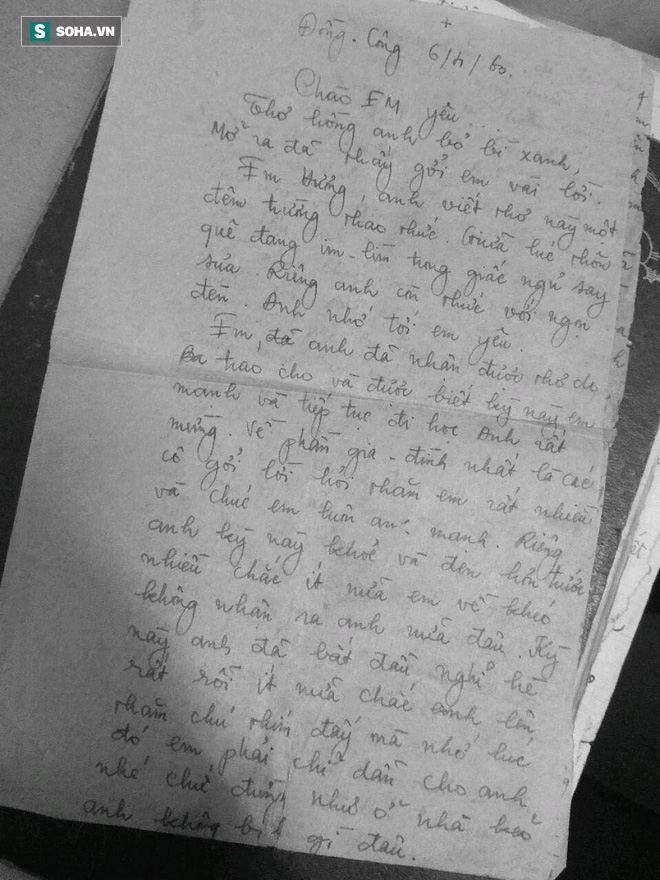 SOHA.VN
Đông. Công 6/4/60.
Chào EM yêu....
Thơ hồng anh bỏ bì xanh,
Mở ra đã thấy gởi em vài lời.
Em Hương, anh viết thơ này một
đêm trường thao thức. Giữa lúc thôn
quê đang im-lìm trong giấc ngủ say
sưa. Riêng anh còn thức với ngọn
đèn. Anh nhớ tới em yêu.
Em, đã anh đã nhận được thơ do,
Ba trao cho và được biết kỳ này em
mạnh và tiếp tục đi học Anh rất
mừng. Về phần gia-đình nhất là các
cô gởi lời hỏi thăm em rất nhiều
và chúc em luôn an mạnh. Riêng
anh kỳ này khỏe và đen hơn trước
nhiều chắc ít nữa em về khó
không nhận ra anh nữa đâu. Kỳ
này anh đã bắt đầu nghỉ hè
rất rỗi ít nữa chắc anh lên,
thăm chú thím đấy mà nhớ lúc
đó em phải chỉ dẫn cho anh
nhé chứ đừng như ở nhà
anh không gì đâu.